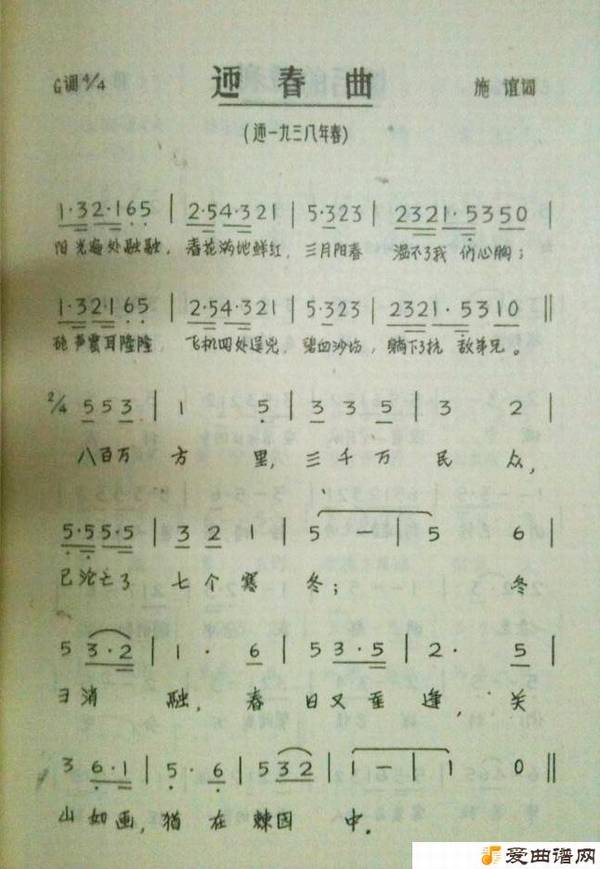 G调 4/4 迎春曲 施谊词
(迎一九三八年春)
1·32·165 | 2·54·321 | 5·323 | 2321·5350 |
阳光遍处融融，春花满地鲜红，三月阳春 温不了我们心胸；
1·32·165 | 2·54·321 | 5·323 | 2321·5310 ‖
炮声震耳隆隆，飞机四处逞兇，碧血沙场，躺下了抗敌弟兄。
2/4 553 | 1 5 | 335 | 3 2 |
八百万方里，三千万民众，
5·55·5 | 321 | 5— | 5 6 |
已沦亡了七个寒冬；冬
5 3·2 | 1· 6 | 53·5 | 2· 5 |
日消融，春日又重逢，关
3 6·1 | 5· 6 | 532 | 1— | 1 0 ‖
山如画，犹在棘园中。
爱曲谱网